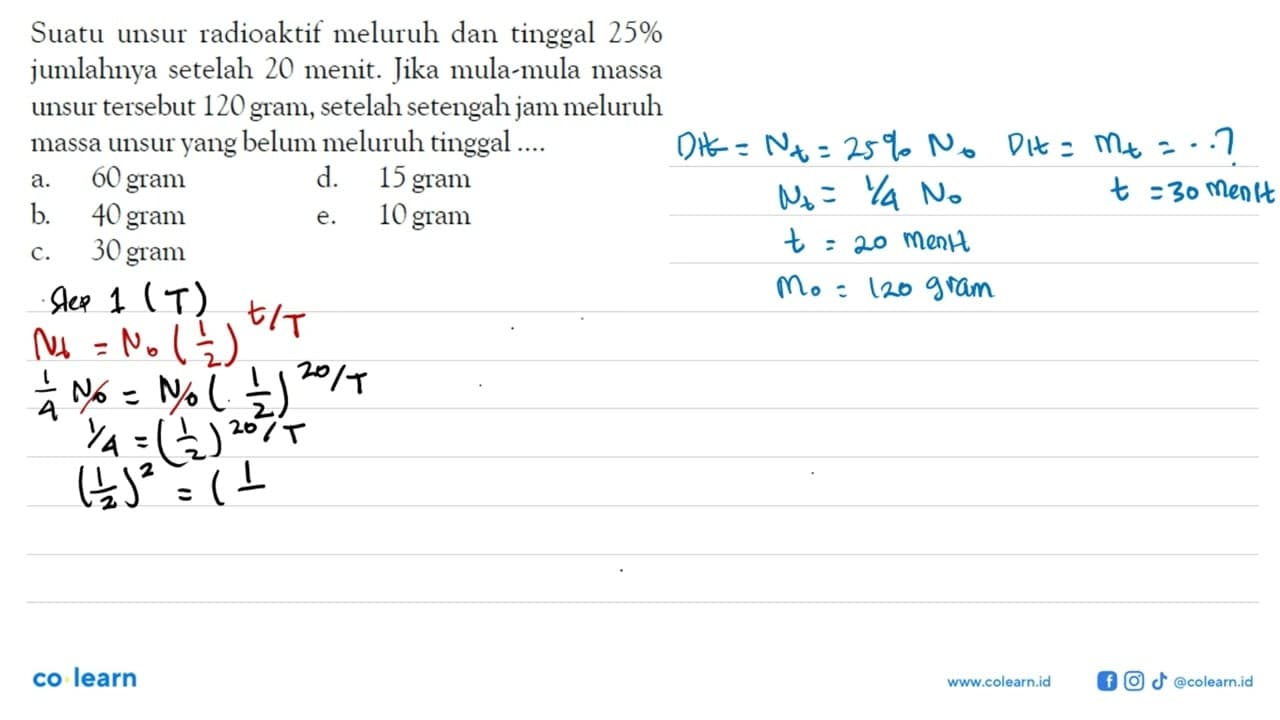 Suatu unsur radioaktif meluruh dan tinggal 25%
jumlahnya setelah 20 menit. Jika mula-mula massa
unsur tersebut 120 gram, setelah setengah jam meluruh
massa unsur yang belum meluruh tinggal ....
a. 60 gram d. 15 gram
b. 40 gram e. 10 gram
c. 30 gram
Dit = Nt = 25% No Dit = mt = ...?
Nt = 1/4 No t = 30 menit
t = 20 menit
mo = 120 gram
Step 1 (T)
Nt = No (1/2)^t/T
1/4 No = No (1/2)^20/T
1/4 = (1/2)^20/T
(1/2)^2 = (1
co learn
www.colearn.id @colearn.id